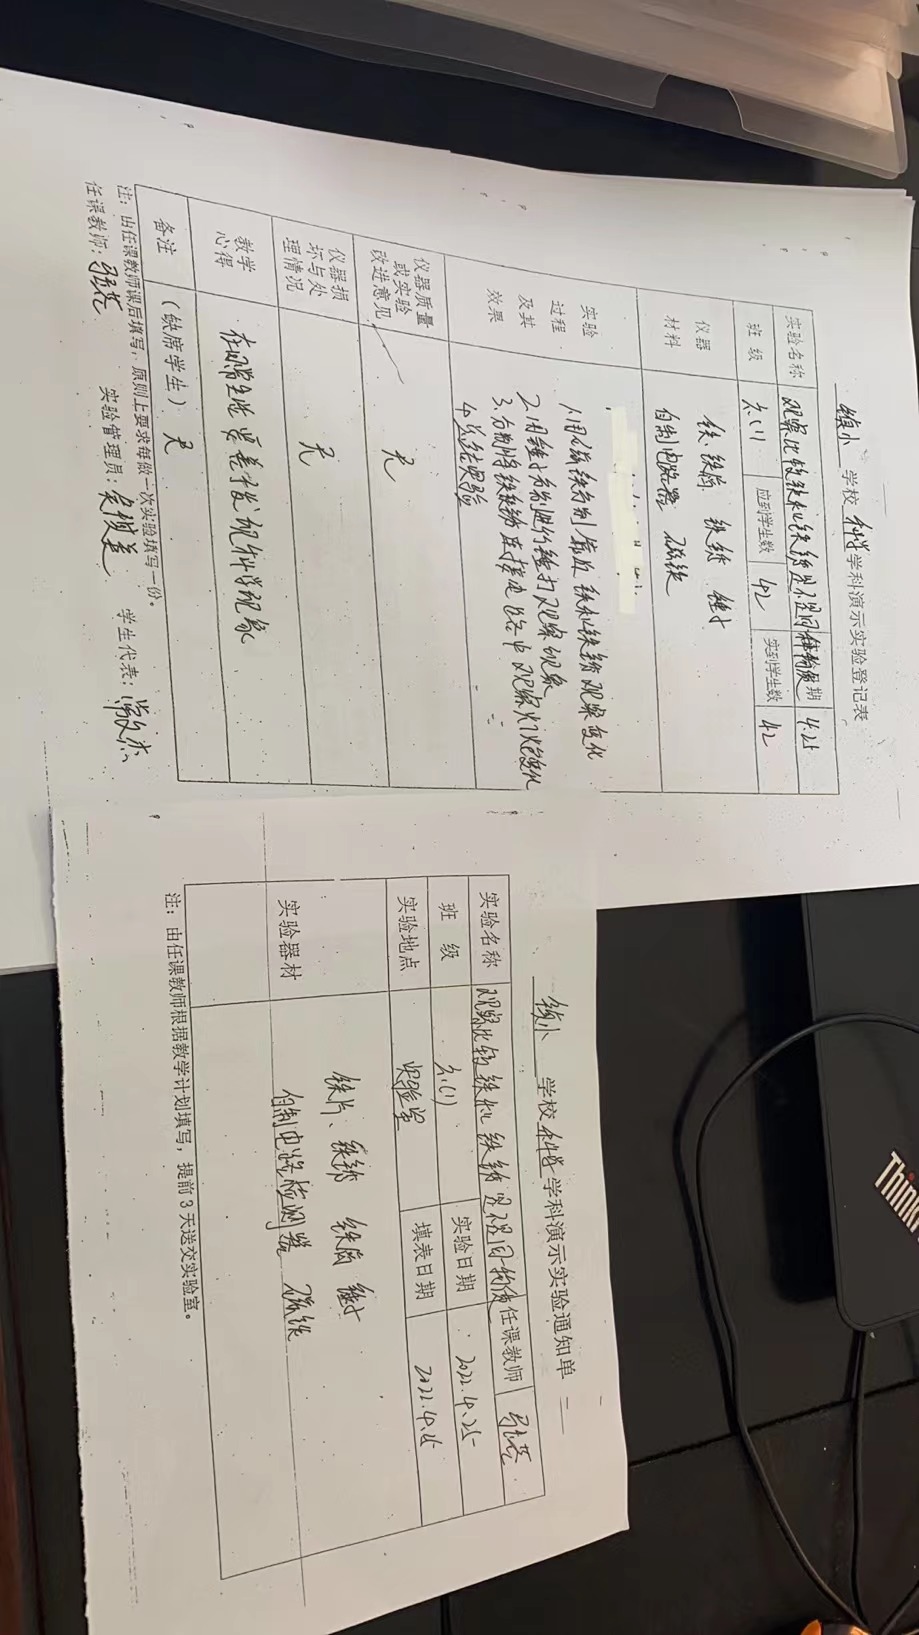 镇小 学校 科学 学科演示实验登记表
实验名称 观察比较铁和铁锈是不是同种物质 日期 4.25
班 级 六(1) 应到学生数 42 实到学生数 42
仪器材料 铁、铁屑 铁锈 锤子
自制电路 磁铁
实验过程及其效果
1.用磁铁分别靠近铁和铁锈观察变化
2.用锤子分别进行锤打观察现象
3.分别将铁铁锈连接电路中观察灯泡变化
4.总结实验
仪器质量或实验改进意见 无
仪器损坏与处理情况 无
教学心得 在日常生活要善于发现科学现象
备注 (缺席学生) 无
注:由任课教师课后填写,原则上要求每做一次实验填写一份。
任课教师: 实验管理员: 学生代表:
镇小 学校 科学 学科演示实验通知单
实验名称 观察比较铁和铁锈是不是同物质 任课教师
班 级 六(1) 实验日期 2022.4.25
实验地点 实验室 填表日期 2022.4.
实验器材 铁片、铁锈 铁屑 锤子
自制电路检测器 磁铁
注:由任课教师根据教学计划填写,提前3天送交实验室。
Think